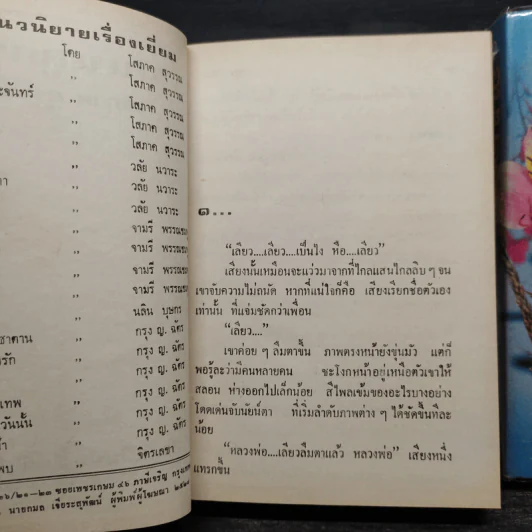 นวนิยายเรื่องเยี่ยม
โดย โสภาค สุวรรณ
” โสภาค สุวรรณ
ะจันทร์ ” โสภาค สุวรรณ
” โสภาค สุวรรณ
” โสภาค สุวรรณ
” วลัย นวาระ
” วลัย นวาระ
” วลัย นวาระ
” จามรี พรรณชมพู
” จามรี พรรณ
” จามรี พรรณ
” จามรี พรรณ
” นลิน บุษกร
ซาตาน ” กรุง ญ. ฉัตร
รัก ” กรุง ญ. ฉัตร
” กรุง ญ. ฉัตร
เทพ ” กรุง ญ. ฉัตร
วันนั้น ” กรุง ญ. ฉัตร
” จิตรเลขา
ซอยเพชรเกษม ๔๖ ภาษีเจริญ กรุงเทพ
นายกมล ผู้พิมพ์ผู้โฆษณา
๑...
“เลียว....เลียว....เป็นไง หือ....เลียว”
เสียงนั้นเหมือนจะแว่วมาจากที่ไกลแสนไกลลิบๆ จน
เขาจับความไม่ถนัด หากที่แน่ใจก็คือ เสียงเรียกชื่อตัวเอง
เท่านั้น ที่แจ่มชัดกว่าเพื่อน
“เลียว....”
เขาค่อยๆ ลืมตาขึ้น ภาพตรงหน้ายังขุ่นมัว แต่ก็
พอรู้ละว่ามีคนหลายคน ชะโงกหน้าอยู่เหนือตัวเขาให้
สลอน ห่างออกไปเล็กน้อย สีไพลเข้มของอะไรบางอย่าง
โดดเด่นจับนัยน์ตา ที่เริ่มลำดับภาพต่างๆ ได้ชัดขึ้นทีละ
น้อย
“หลวงพ่อ....เลียวลืมตาแล้ว หลวงพ่อ” เสียงหนึ่ง
แทรกขึ้น